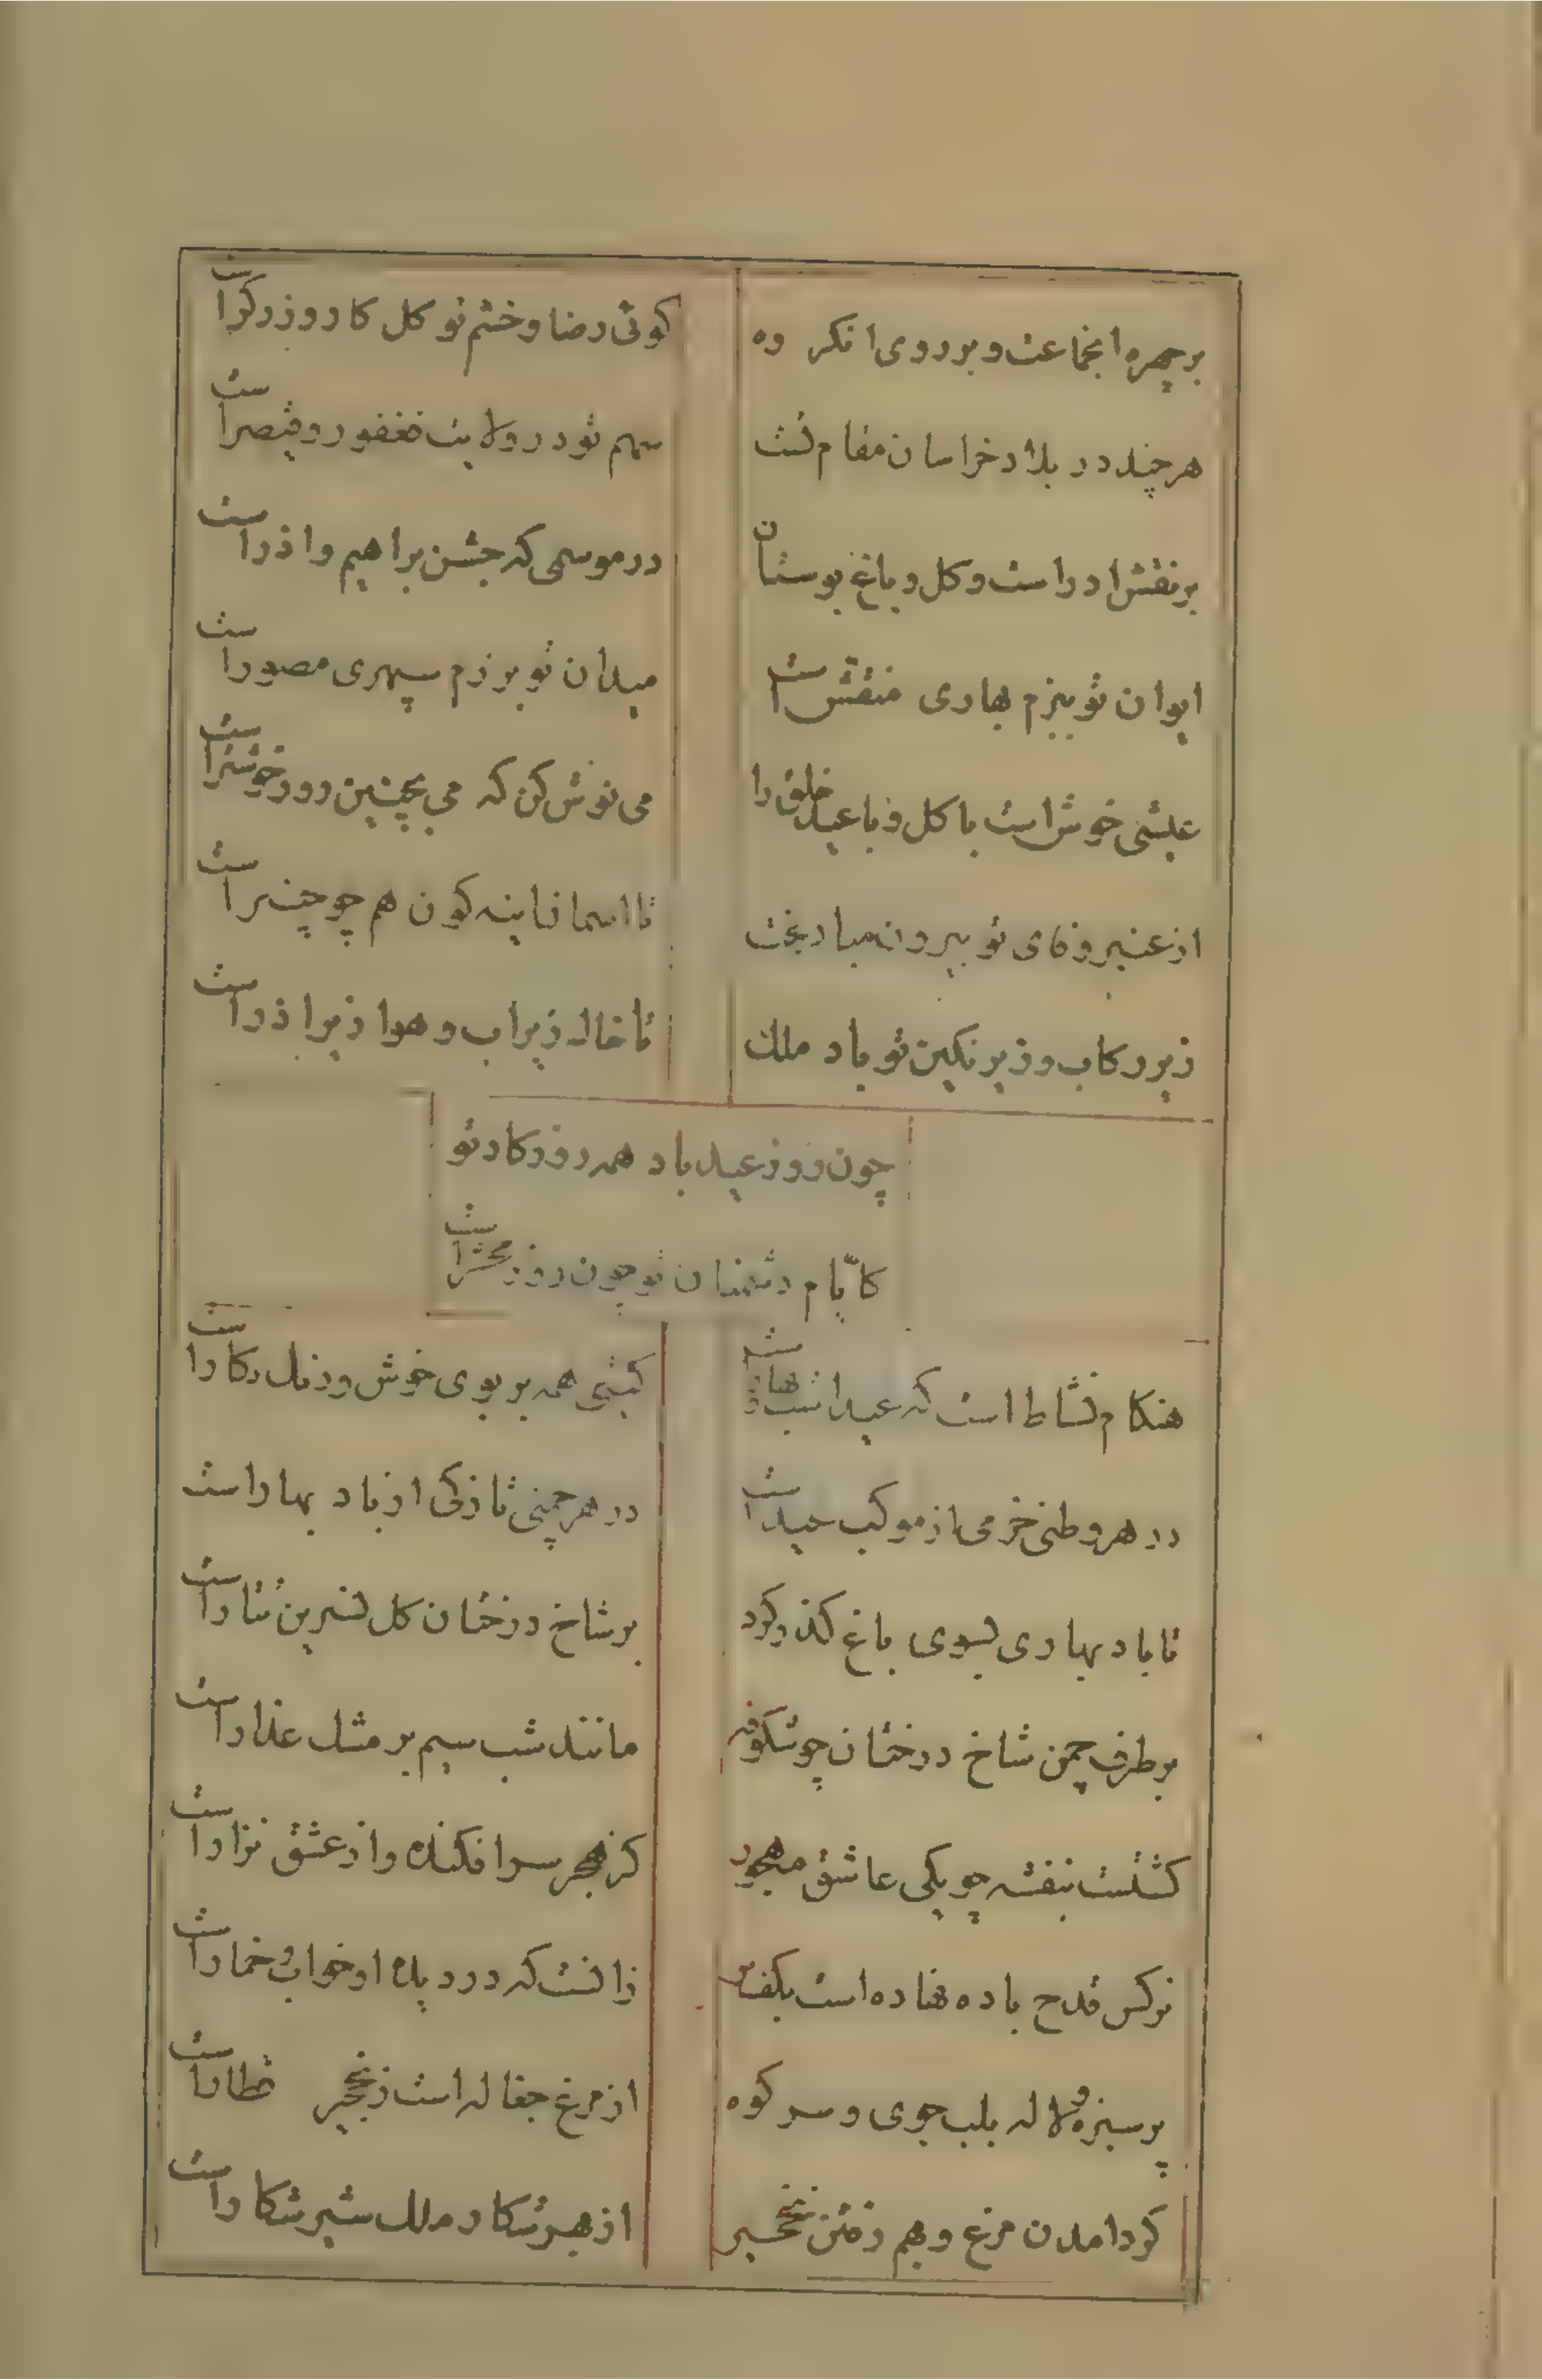 بر چهره انجماعت و بر روی ان کروه
کوئی رضا و خشم تو کل کار و زرکراست
هر چند در بلاد خراسان مقام تست
سهم تو در ولایت فغفور و قیصراست
بر نقش ازراست و کل و باغ بوستان
در موسمی که جشن براهیم و اذراست
ایوان تو ببزم بهاری منقش است
میدان تو برزم سپهری مصوراست
عیشی خوش است با کل و با عید خلق را
می نوش کن که می بچنین روز خوشتراست
از عنبر وفای تو بیرون مباد بخت
تا اسمان اینه کون هم چو چنبراست
زیر رکاب و زیر نکین تو باد ملک
تا خاک زیر اب و هوا زیر اذراست
چون روز عید باد همه روزکار تو
کایّام دشمنان تو چون روز محشراست
هنکام نشاط است که عید است و بهاراست
کیتی همه بر بوی خوش و رنک و نکاراست
در هر وطنی خرمی از موکب عیداست
در هر چمنی تازکی از باد بهاراست
تا باد بهاری بسوی باغ کذر کرد
بر شاخ درختان کل نسرین نثاراست
بر طرف چمن شاخ درختان چو شکوفه
مانند شب سیم بر مشک عذاراست
کشتست بنفشه چو یکی عاشق مهجور
کز هجر سر افکنده و از عشق نزاراست
نرکس قدح باده نهاده است بکف بر
زانست که در دیده او خواب و خماراست
پر سبزه و لاله بلب جوی و سر کوه
از مرغ جغاله است ز نخجیر قطاراست
کرد امدن مرغ و بهم رفتن نخجیر
از بهر شکار ملک شیر شکاراست